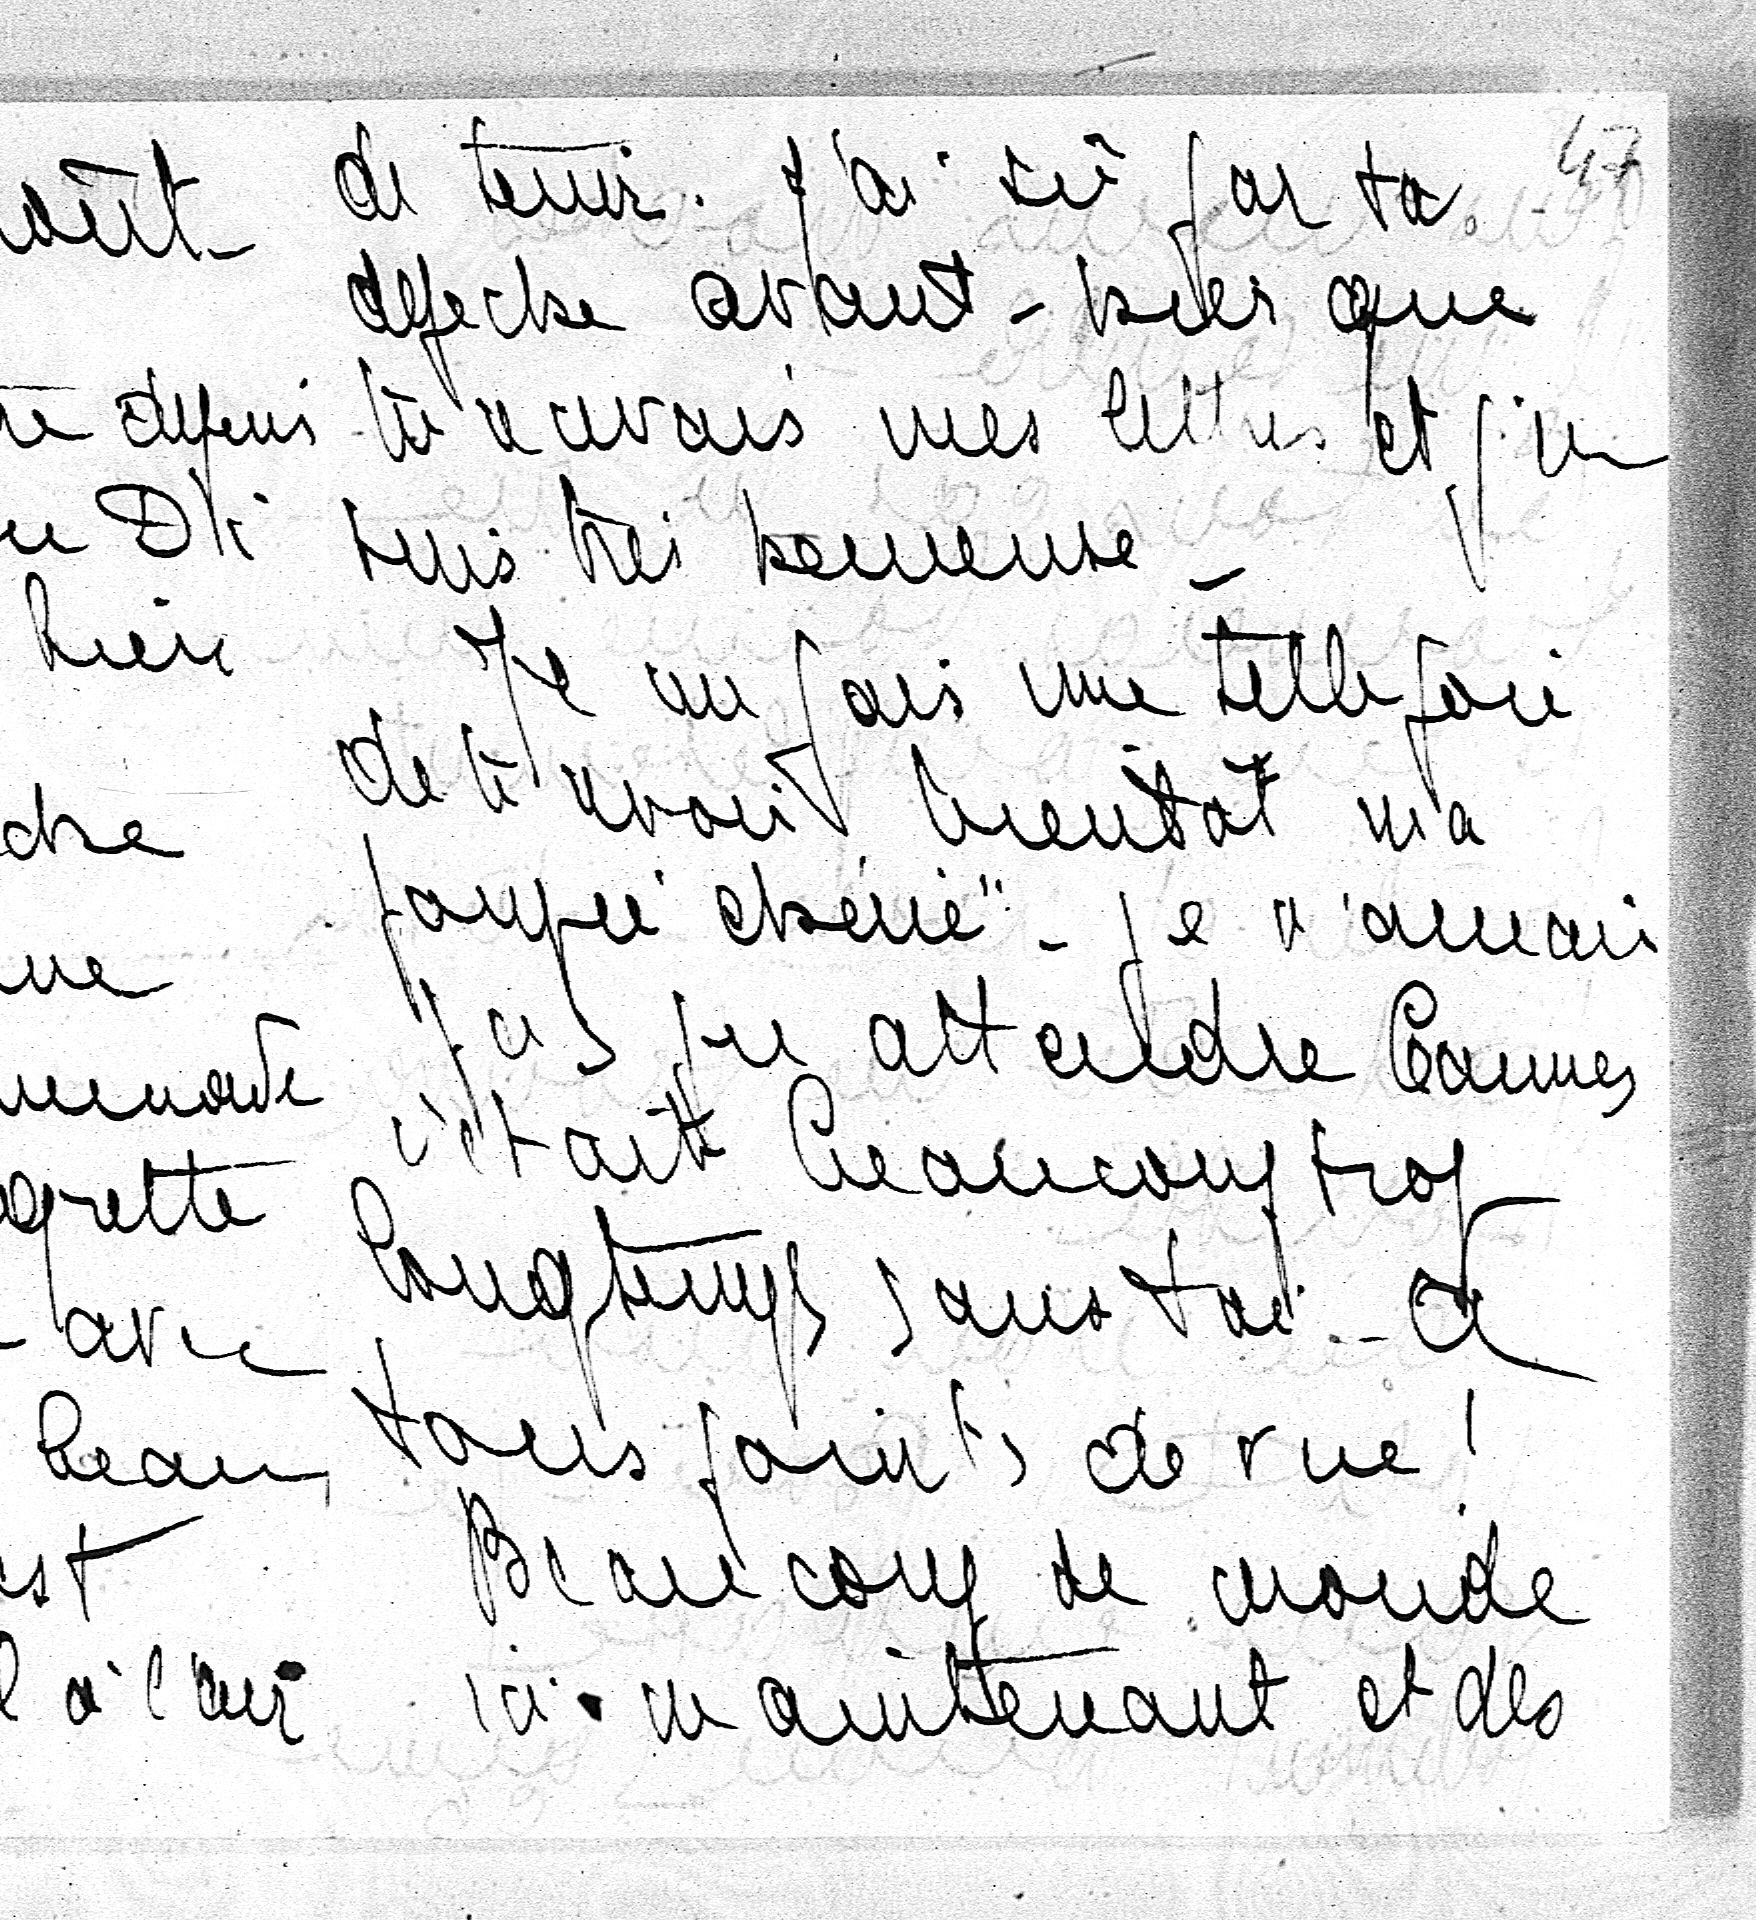 47
oût
depuis
hier
che
ue
menade
grette
avec
beau,
est
l a l'air
de tenir. J'ai sû par ta
depeche avant-hier que
tu avais mes lettres et j'en
suis très heureuse -
Je me fais une telle joie
de t'avoir bientôt ma
poupée chérie" - je n'aurai
pas pu attendre Cannes
c'était beaucoup trop
longtemps sans toi - à
tous points de vue !
Beaucoup de monde
ici maintenant et des